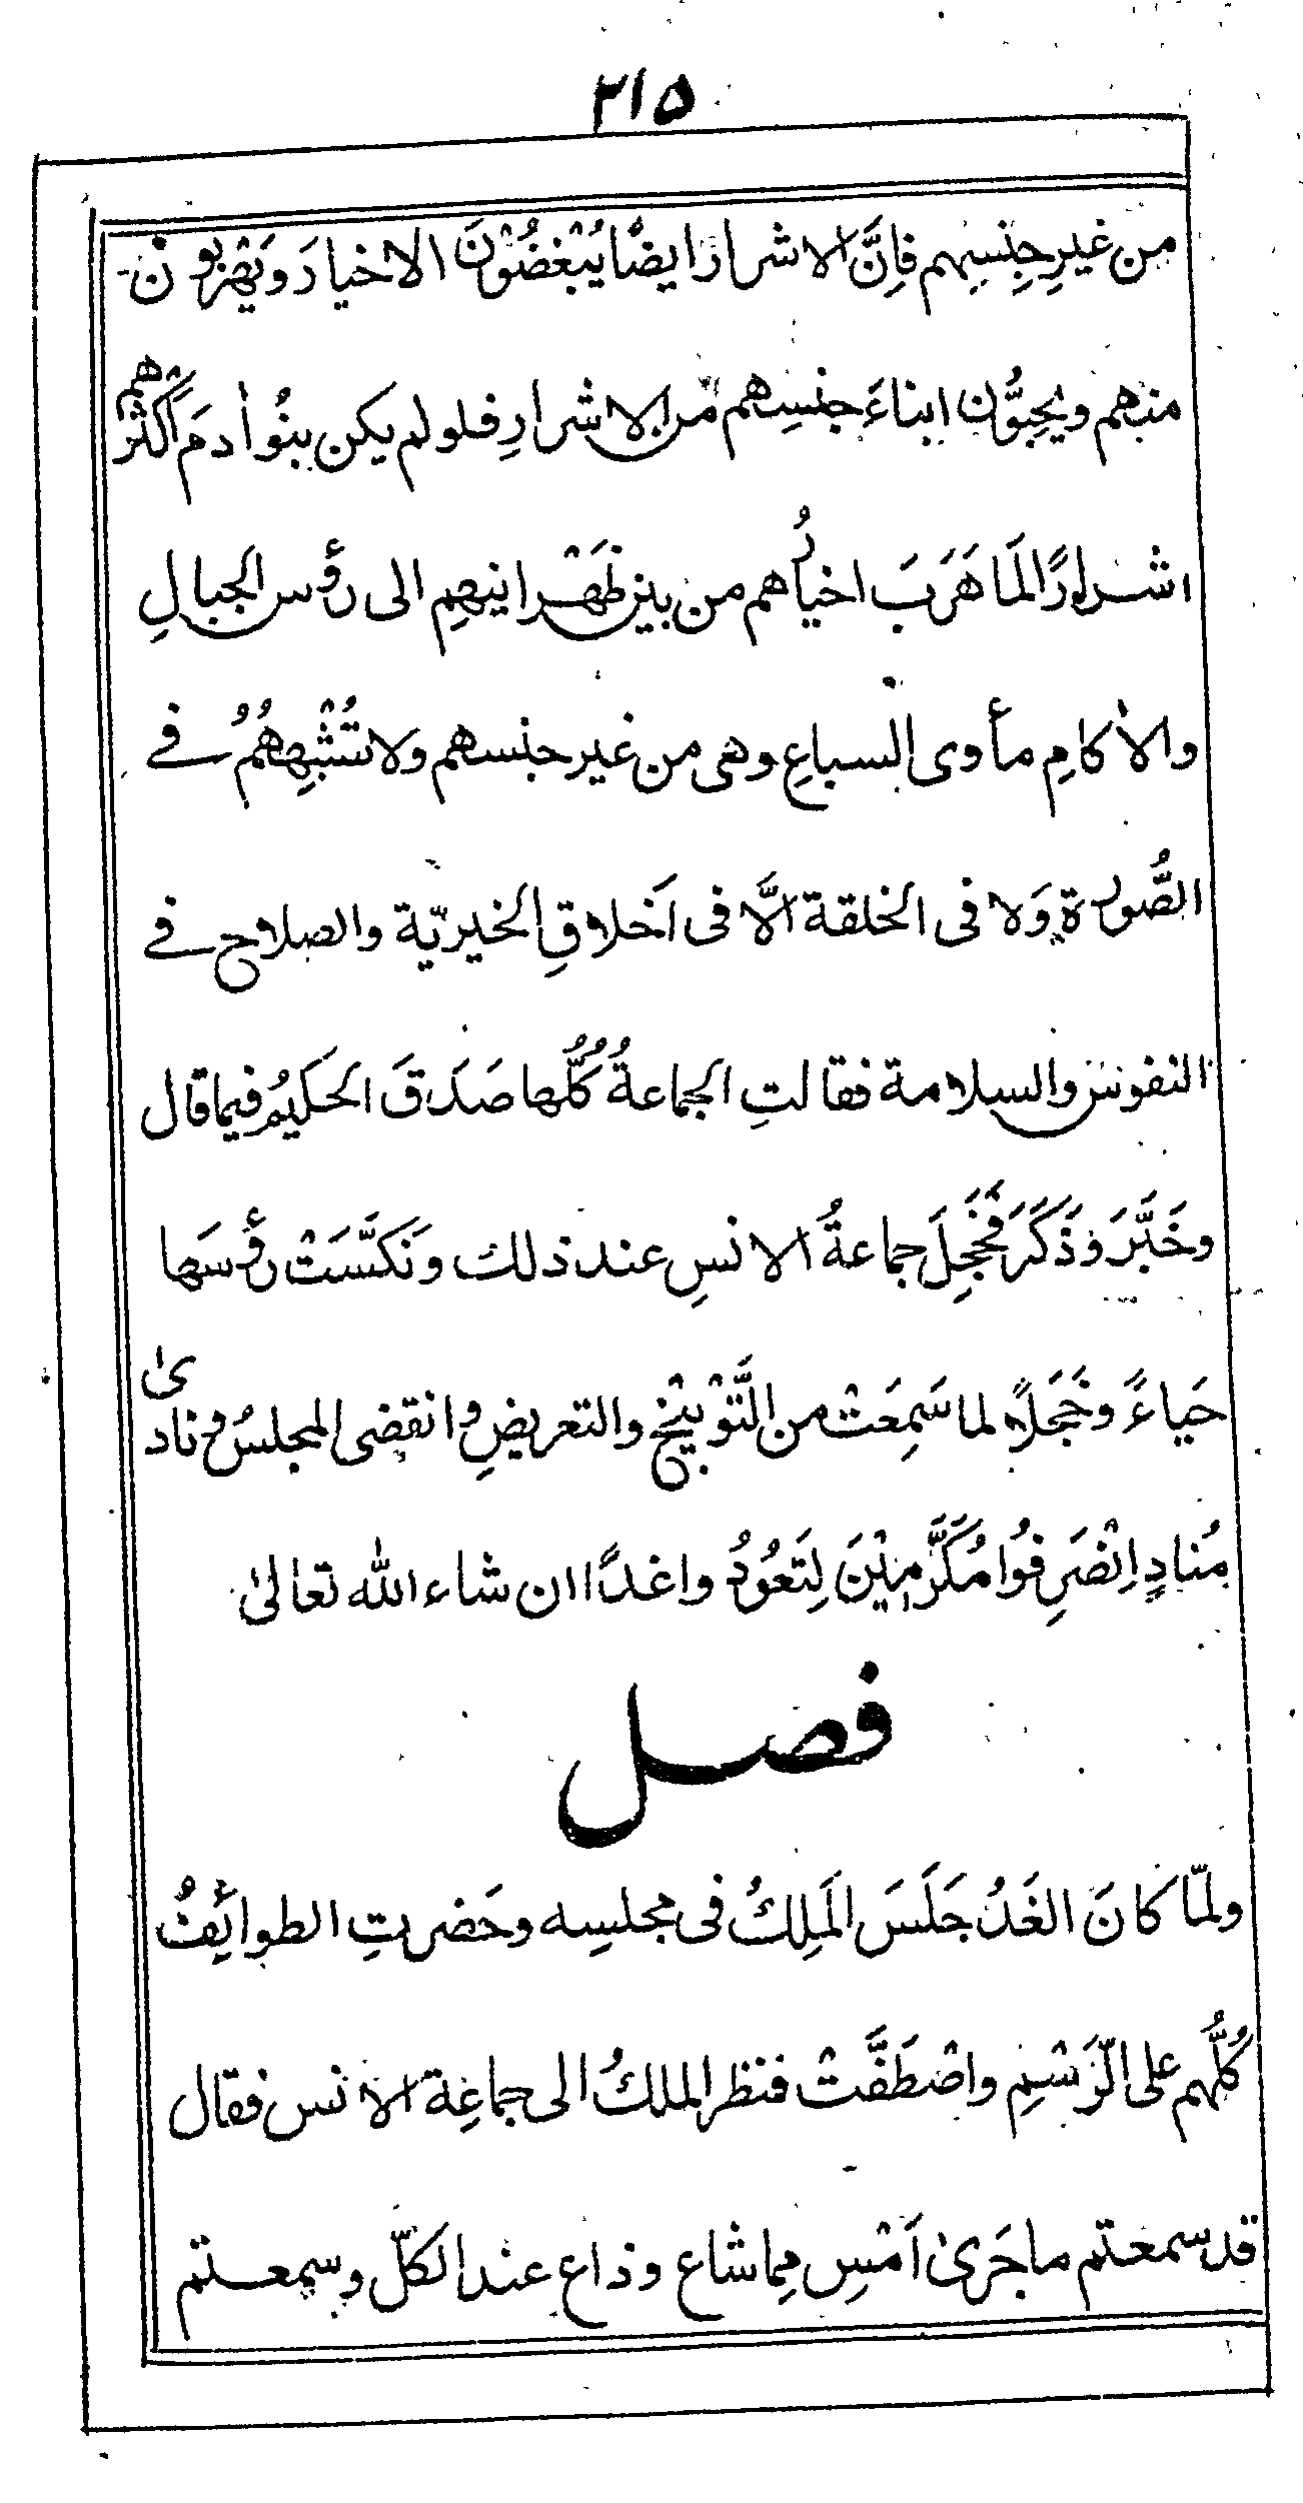 ٢١٥
من غيرِ جِنسِهم فاِنَّ الاشرار ايضًا يُبْغضُوْنَ الاخيارَ ويَهْربون
منهم ويُحِبُّون ابناءَ جنسِهم من الاشرارِ فلو لم يكن بنُو اٰدمَ اكثرُهم
اشرارًا لَمَا هَرَبَ اخيارُهم من بين ظَهْرانيهِم الى رؤس الجبالِ
والاٰكامِ مأوى السباعِ وهى من غير جنسهم ولا تُشْبِهُهُمُ في
الصُّورة وَلا فى الخلقة الَّا فى اَخلاقِ الخيريّة والصلاح في
النفوس والسلامة فقالتِ الجماعةُ كُلُّها صَدَقَ الحَكيمُ فيما قال
وخَبَّرَ وذَكَرَ فَخَجِلَ جماعةُ الانسِ عند ذلك ونَكسَّتْ رؤسَها
حَياءً وخَجَلًا لما سَمِعَتْ من التَّوْبيْخِ والتعريضِ وانقضى المجلسُ ونادى
مُنادٍ اِنْصَرِفُوا مُكَرَّمِيْنَ لِتَعُوْدُوا غدًا ان شاء الله تعالىٰ
فصل
ولمّا كانَ الغَدُ جَلَسَ المَلِكُ فى مجلسِه وحَضرتِ الطوائِفُ
كُلُّهم على الرَّسْمِ واصْطَفَّتْ فنظر الملكُ الى جماعِة الانس فقال
قد سمعتم ما جَرىٰ اَمْسِ مِما شاع وذاع عند الكلّ وسمعتم